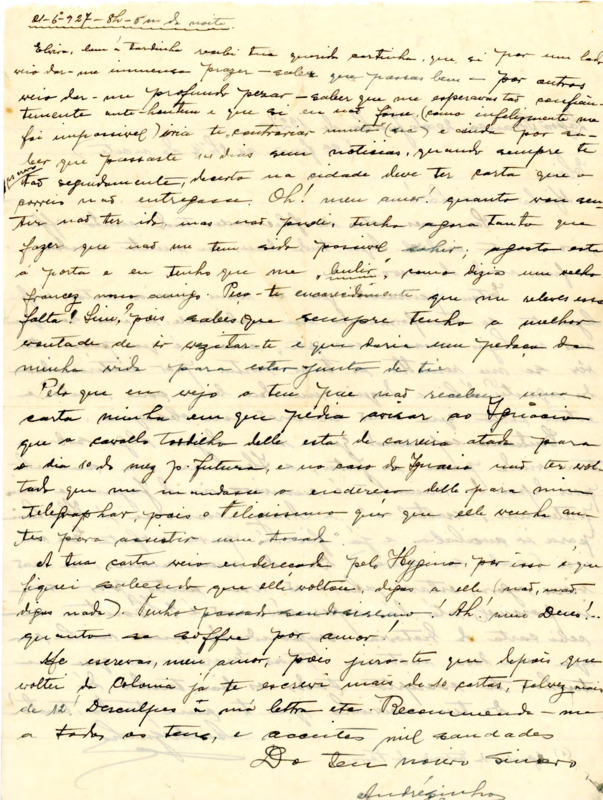 21-6-927-8h-5m da noite
Elvira, bem á tardinha recebi tua querida cartinha, que, si por um lado
veio dar-me immenso prazer - saber que passas bem - por outros
veio dar-me profundo pezar - saber que me esperavas tão confian-
temente ante-hontem e que si eu não fosse, (como infelizmente me
foi impossivel) iria te contrariar muito e ainda por sa-
ber que passaste dias sem noticias, quando sempre te
escrevo
tão seguidamente, decerto na cidade deve ter carta que o
correio não entregasse. Oh! meu amor! quanto vou sen-
tir não ter ido, mas não pude, tenho agora tanto que
fazer que não me tem sido possivel sahir; agosto está
á porta e eu tenho que me "bulir", como dizia um velho
francez nosso amigo. Peço-te encarecidamente que me releves essa
falta! Sim? pois sabes que sempre tenho a melhor
vontade de ir vizitar-te e que daria um pedaço da
minha vida para estar junto de ti.
Pelo que eu vejo o teu pae não recebeu uma
carta minha em que pedia avisar ao Ignacio
que o cavallo tordilho delle está de carreira atada para
o dia 10 do mez p. futuro, e no caso do Ignacio não ter vol-
tado que me mandasse o endereço delle para mim
telegraphar, pois o Felicissimo quer que elle venha an-
tes para assistir uma "tocada".
A tua carta veio endereçada pelo Hygino, por isso é que
fiquei sabendo que elle voltou, digas a elle (não, não
digas nada). Tenho passado saudosissimo! Ah! meu Deus!..
quanto se soffre por amor!
Me escrevas, meu amor, pois juro-te que depois que
voltei da Colonia já te escrevi mais de 10 cartas, talvez mais
de 12! Desculpes á má letra etc. Recommenda-me
a todos os teus, e acceites mil saudades
Do teu noivo sincero
Andrésinho